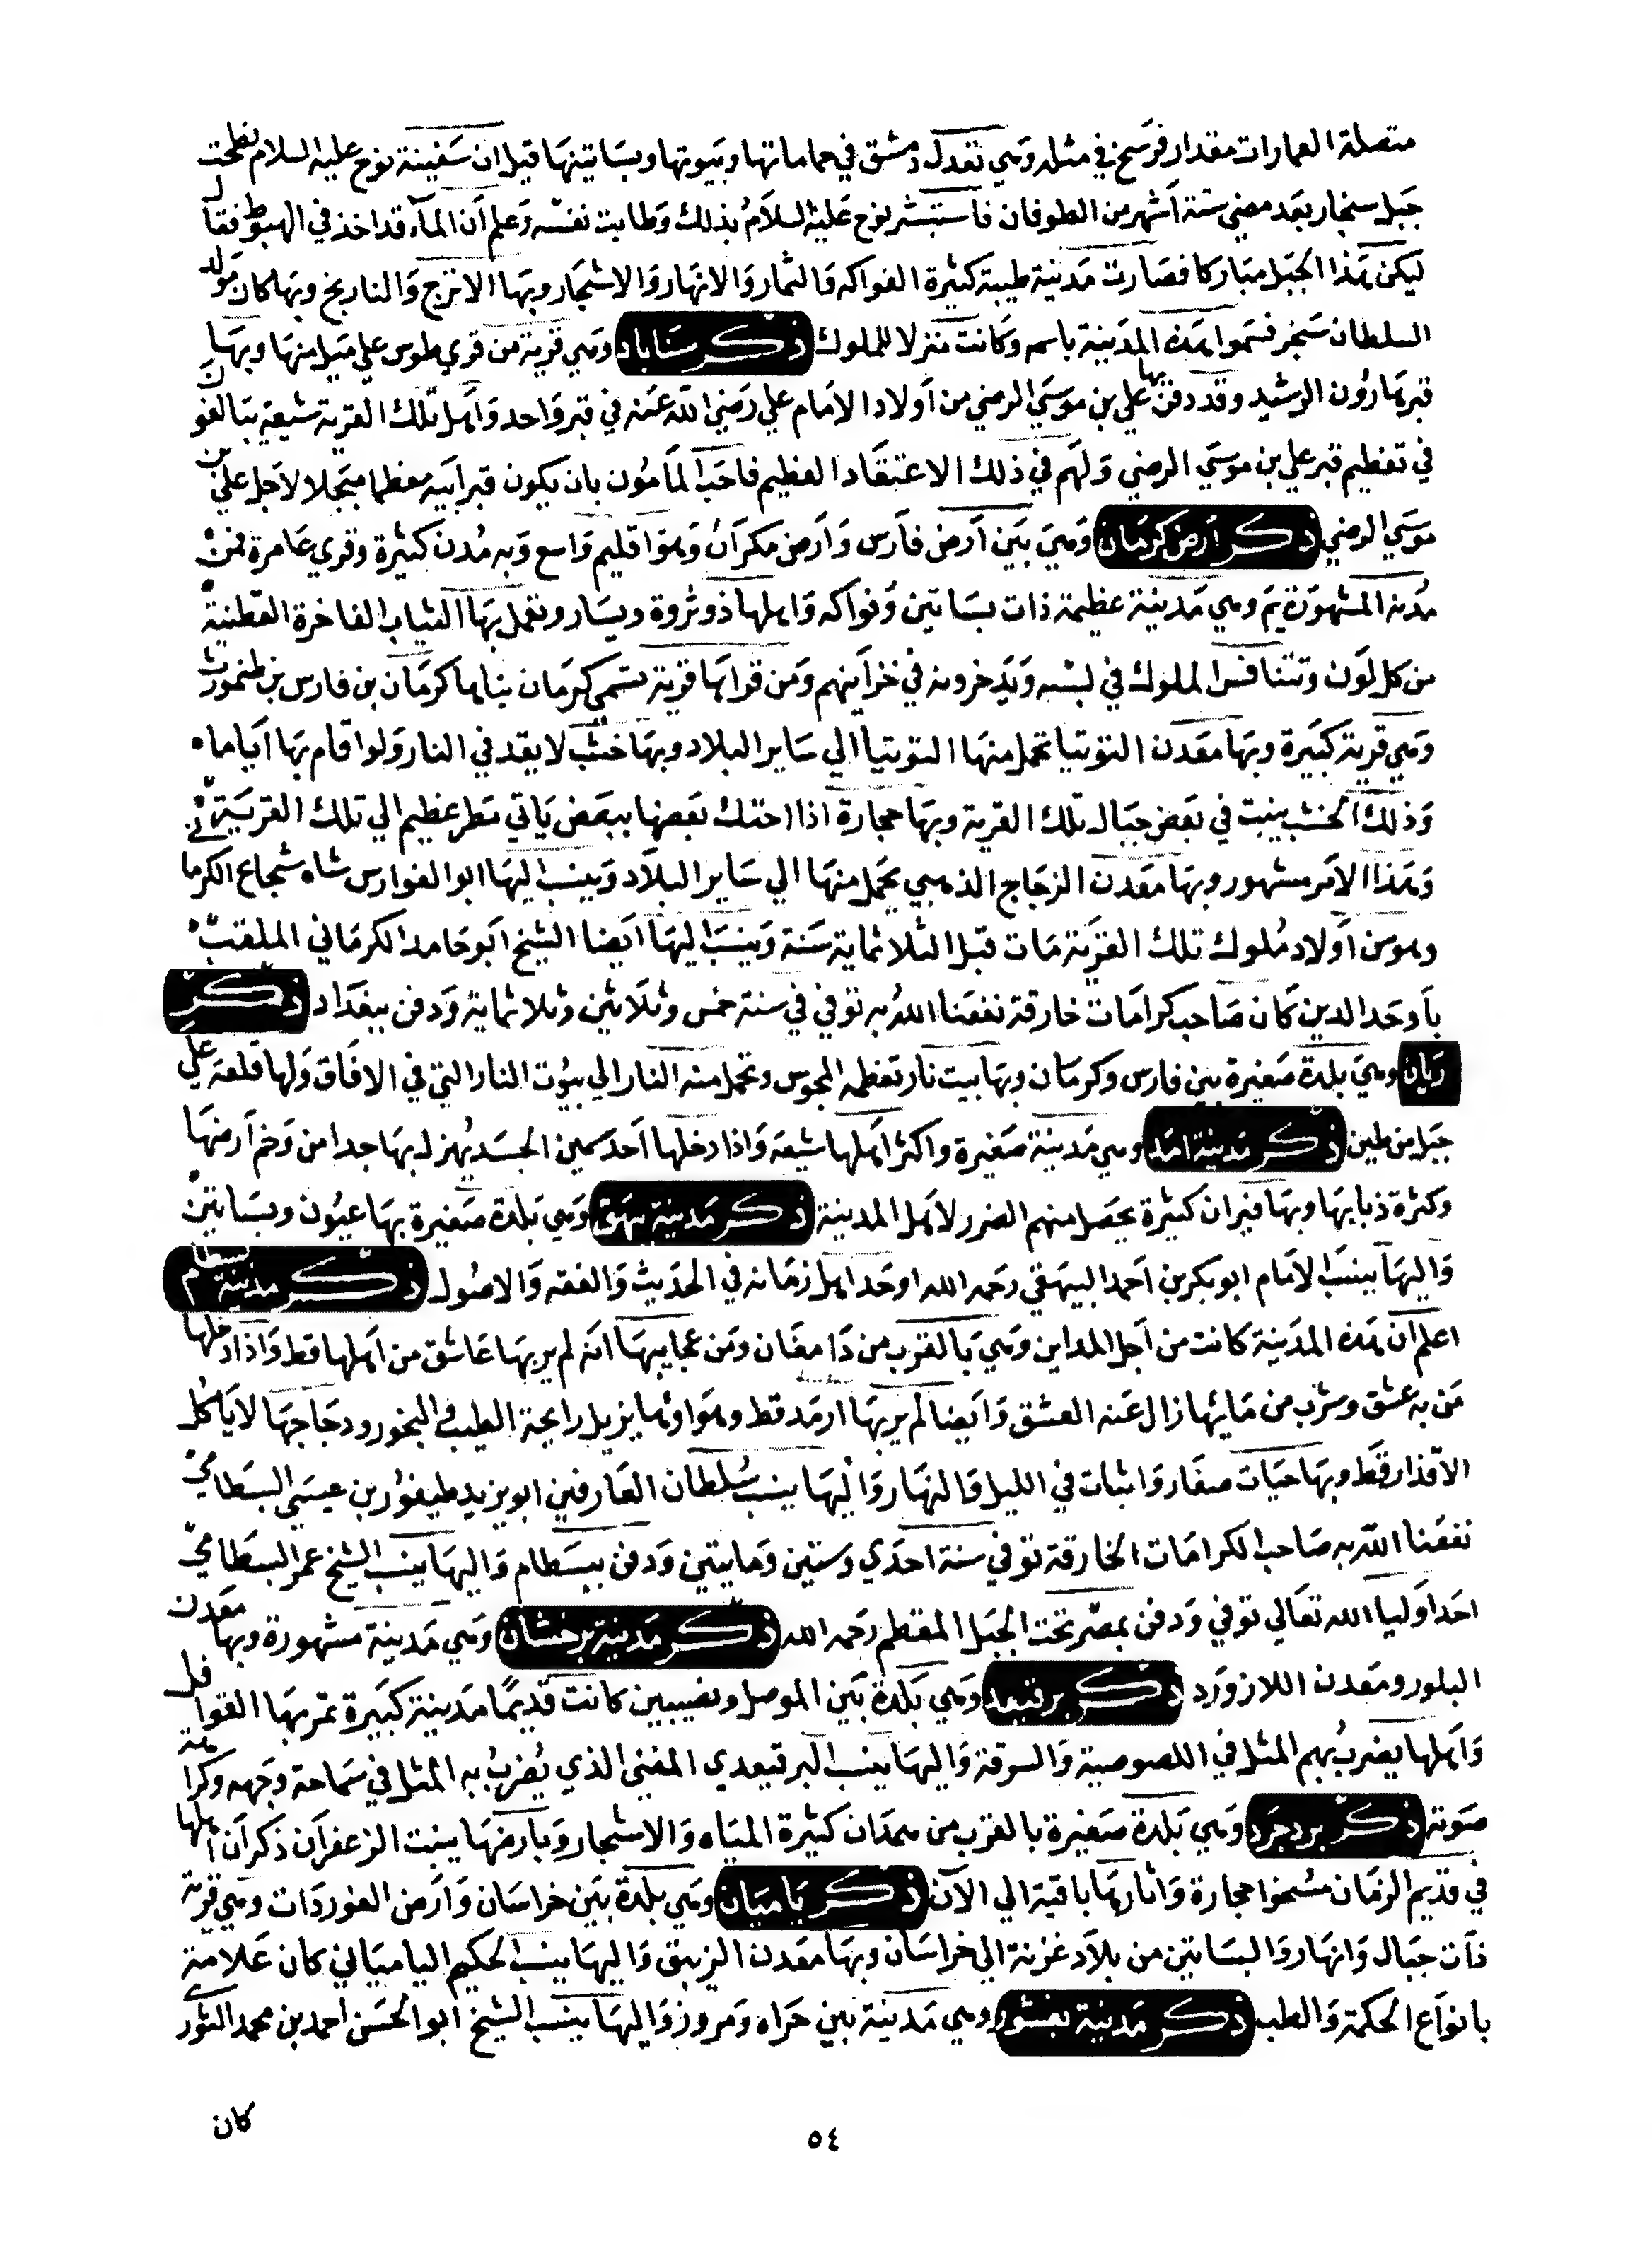 متصلة العمارات مقدار فرسخ في مثله وهي تعدل دمشق في حماماتها وبيوتها وبساتينها قيل ان سفينة نوح عليه السلام نطحت
جبل سنجار بعد مضي ستة اشهر من الطوفان فاستبشر نوح عليه السلام بذلك وطابت نفسه وعلم ان المآء قد اخذ في الهبوط فقال
ليكن هذا الجبل مباركا فصارت مدينة طيبة كثيرة الفواكه والثمار والانهار والاشجار وبها الاترج والنارنج وبها كان مولد
السلطان سنجر فسموا هذه المدينة باسمه وكانت منزلا للملوك ذكر سناباد وهي قرية من قري طوس علي ميل منها وبها
قبر هارون الرشيد وقد دفن بها علي بن موسي الرضي من اولاد الامام علي رضي الله عنه في قبر واحد واهل تلك القرية شيعة يبالغون
في تعظيم قبر علي بن موسي الرضي ولهم في ذلك الاعتقاد العظيم فاحب المأمون بان يكون قبر ابيه معظما مبجلا لاجل علي بن
موسي الرضي ذكر ارض كرمان وهي بين ارض فارس وارض مكران وهو اقليم واسع وبه مدن كثيرة وقري عامرة فمن
مدنه المشهورة بم وهي مدينة عظيمة ذات بساتين وفواكه واهلها ذو ثروة ويسار وتعمل بها الثياب الفاخرة القطنية
من كل لون وتتنافس الملوك في لبسه ويدخرونه في خزاينهم ومن قراها قرية تسمي كرمان بناها كرمان بن فارس بن طهمورث
وهي قرية كبيرة وبها معدن التوتيا تحمل منها التوتيا الي ساير البلاد وبها خشب لا يقد في النار ولو اقام بها اياما
وذلك الخشب ينبت في بعض جبال تلك القرية وبها حجارة اذا احتك بعضها ببعض ياتي مطر عظيم الي تلك القرية
وهذا الامر مشهور وبها معدن الزجاج الذهبي يحمل منها الي ساير البلاد وينسب اليها ابو الفوارس شاه شجاع الكرماني
وهو من اولاد ملوك تلك القرية مات قبل الثلاثماية سنة وينسب اليها ايضا الشيخ ابو حامد الكرماني الملقب
باوحد الدين كان صاحب كرامات خارقة نفعنا الله به توفي في سنة خمس وثلاثين وثلاثماية ودفن ببغداد ذكر
ويان وهي بلدة صغيرة بين فارس وكرمان وبها بيت نار تعظمه المجوس وتحمل منه النار الي بيوت النار التي في الافاق ولها قلعة علي
جبل من طين ذكر مدينة امد وهي مدينة صغيرة واكثر اهلها شيعة واذا دخلها احد سمين الجسد يهزل بها جدا من وخم ارضها
وكثرة ذبابها وبها فيران كثيرة يحصل منهم الضرر لاهل المدينة ذكر مدينة بيهق وهي بلدة صغيرة بها عيون وبساتين
واليها ينسب الامام ابو بكر بن احمد البيهقي رحمه الله اوحد اهل زمانه في الحديث والفقه والاصول ذكر مدينة بسطام
اعلم ان هذه المدينة كانت من اجل المداين وهي بالقرب من دامغان ومن عجايبها انه لم ير بها عاشق من اهلها قط واذا دخلها
من به عشق وشرب من مايها زال عنه العشق وايضا لم ير بها ارمد قط وهواؤها يزيل رايحة الطيب في البخور ودجاجها لا ياكل
الاقذار قط وبها حيات صغار واثبات في الليل والنهار واليها ينسب سلطان العارفين ابو يزيد طيفور بن عيسي البسطامي
نفعنا الله به صاحب الكرامات الخارقة توفي في سنة احدي وستين ومايتين ودفن ببسطام واليها ينسب الشيخ عمر البسطامي
احد اوليا الله تعالي توفي ودفن بمصر تحت الجبل المقطم رحمه الله ذكر مدينة بدخشان وهي مدينة مشهورة وبها معدن
البلور ومعدن اللازورد ذكر برقعيد وهي بلدة بين الموصل ونصيبين كانت قديمًا مدينة كبيرة تمر بها القوافل
واهلها يضرب بهم المثل في اللصوصية والسرقة واليها ينسب البرقعيدي المغني الذي يضرب به المثل في سماحة وجهه وكراهة
صوته ذكر بروجرد وهي بلدة صغيرة بالقرب من همدان كثيرة المياه والاشجار وبارضها ينبت الزعفران ذكر ان اهلها
في قديم الزمان مسخوا حجارة واثارها باقية الي الآن ذكر باميان وهي بلدة بين خراسان وارض الغور ذات وهي قرية
ذات جبال وانهار والبساتين من بلاد غزنة الي خراسان وبها معدن الزيبق واليها ينسب الحكيم الباميااني كان علامة
بانواع الحكمة والطب ذكر مدينة بغشور وهي مدينة بين حراه ومروز واليها ينسب الشيخ ابو الحسن احمد بن محمد الثوري
كان
٥٤